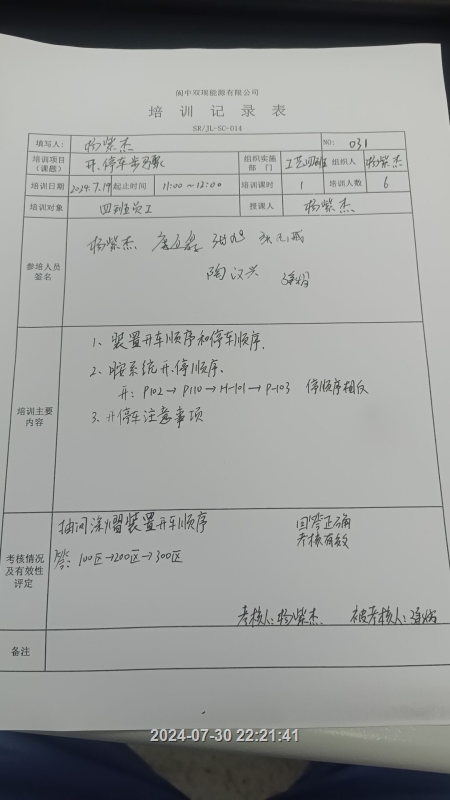 阆中双瑞能源有限公司
培训记录表
SR/JL-SC-014
填写人: 杨紫杰 NO: 031
培训项目(课题) 开、停车步骤 组织实施部门 工艺四班 组织人 杨紫杰
培训日期 2024.7.19 起止时间 11:00~12:00 培训课时 1 培训人数 6
培训对象 四班员工 授课人 杨紫杰
参培人员签名 杨紫杰
陶汉兴
培训主要内容
1、装置开车顺序和停车顺序.
2、胺系统开.停顺序.
开: P102→P110→H-101→P-103 停顺序相反
3、开停车注意事项
考核情况及有效性评定
抽问 装置开车顺序 回答正确
答: 100区→200区→300区 考核有效
考核人: 杨紫杰. 被考核人:
备注
2024-07-30 22:21:41